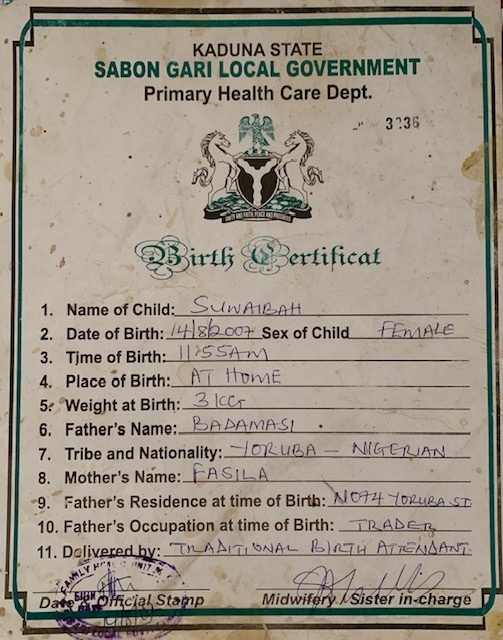 KADUNA STATE
SABON GARI LOCAL GOVERNMENT
Primary Health Care Dept.
3236
UNITY AND FAITH, PEACE AND PROGRESS
Birth Certificat
1. Name of Child: SUWAIBAH
2. Date of Birth: 14/8/2007 Sex of Child FEMALE
3. Time of Birth: 11:55AM
4. Place of Birth: AT HOME
5. Weight at Birth: 3KG
6. Father's Name: BADAMASI
7. Tribe and Nationality: YORUBA - NIGERIAN
8. Mother's Name: FASILA
9. Father's Residence at time of Birth: NO74 YORUBA ST.
10. Father's Occupation at time of Birth: TRADER
11. Delivered by: TRADITIONAL BIRTH ATTENDANT.
Date & Official Stamp Midwifery / Sister in-charge